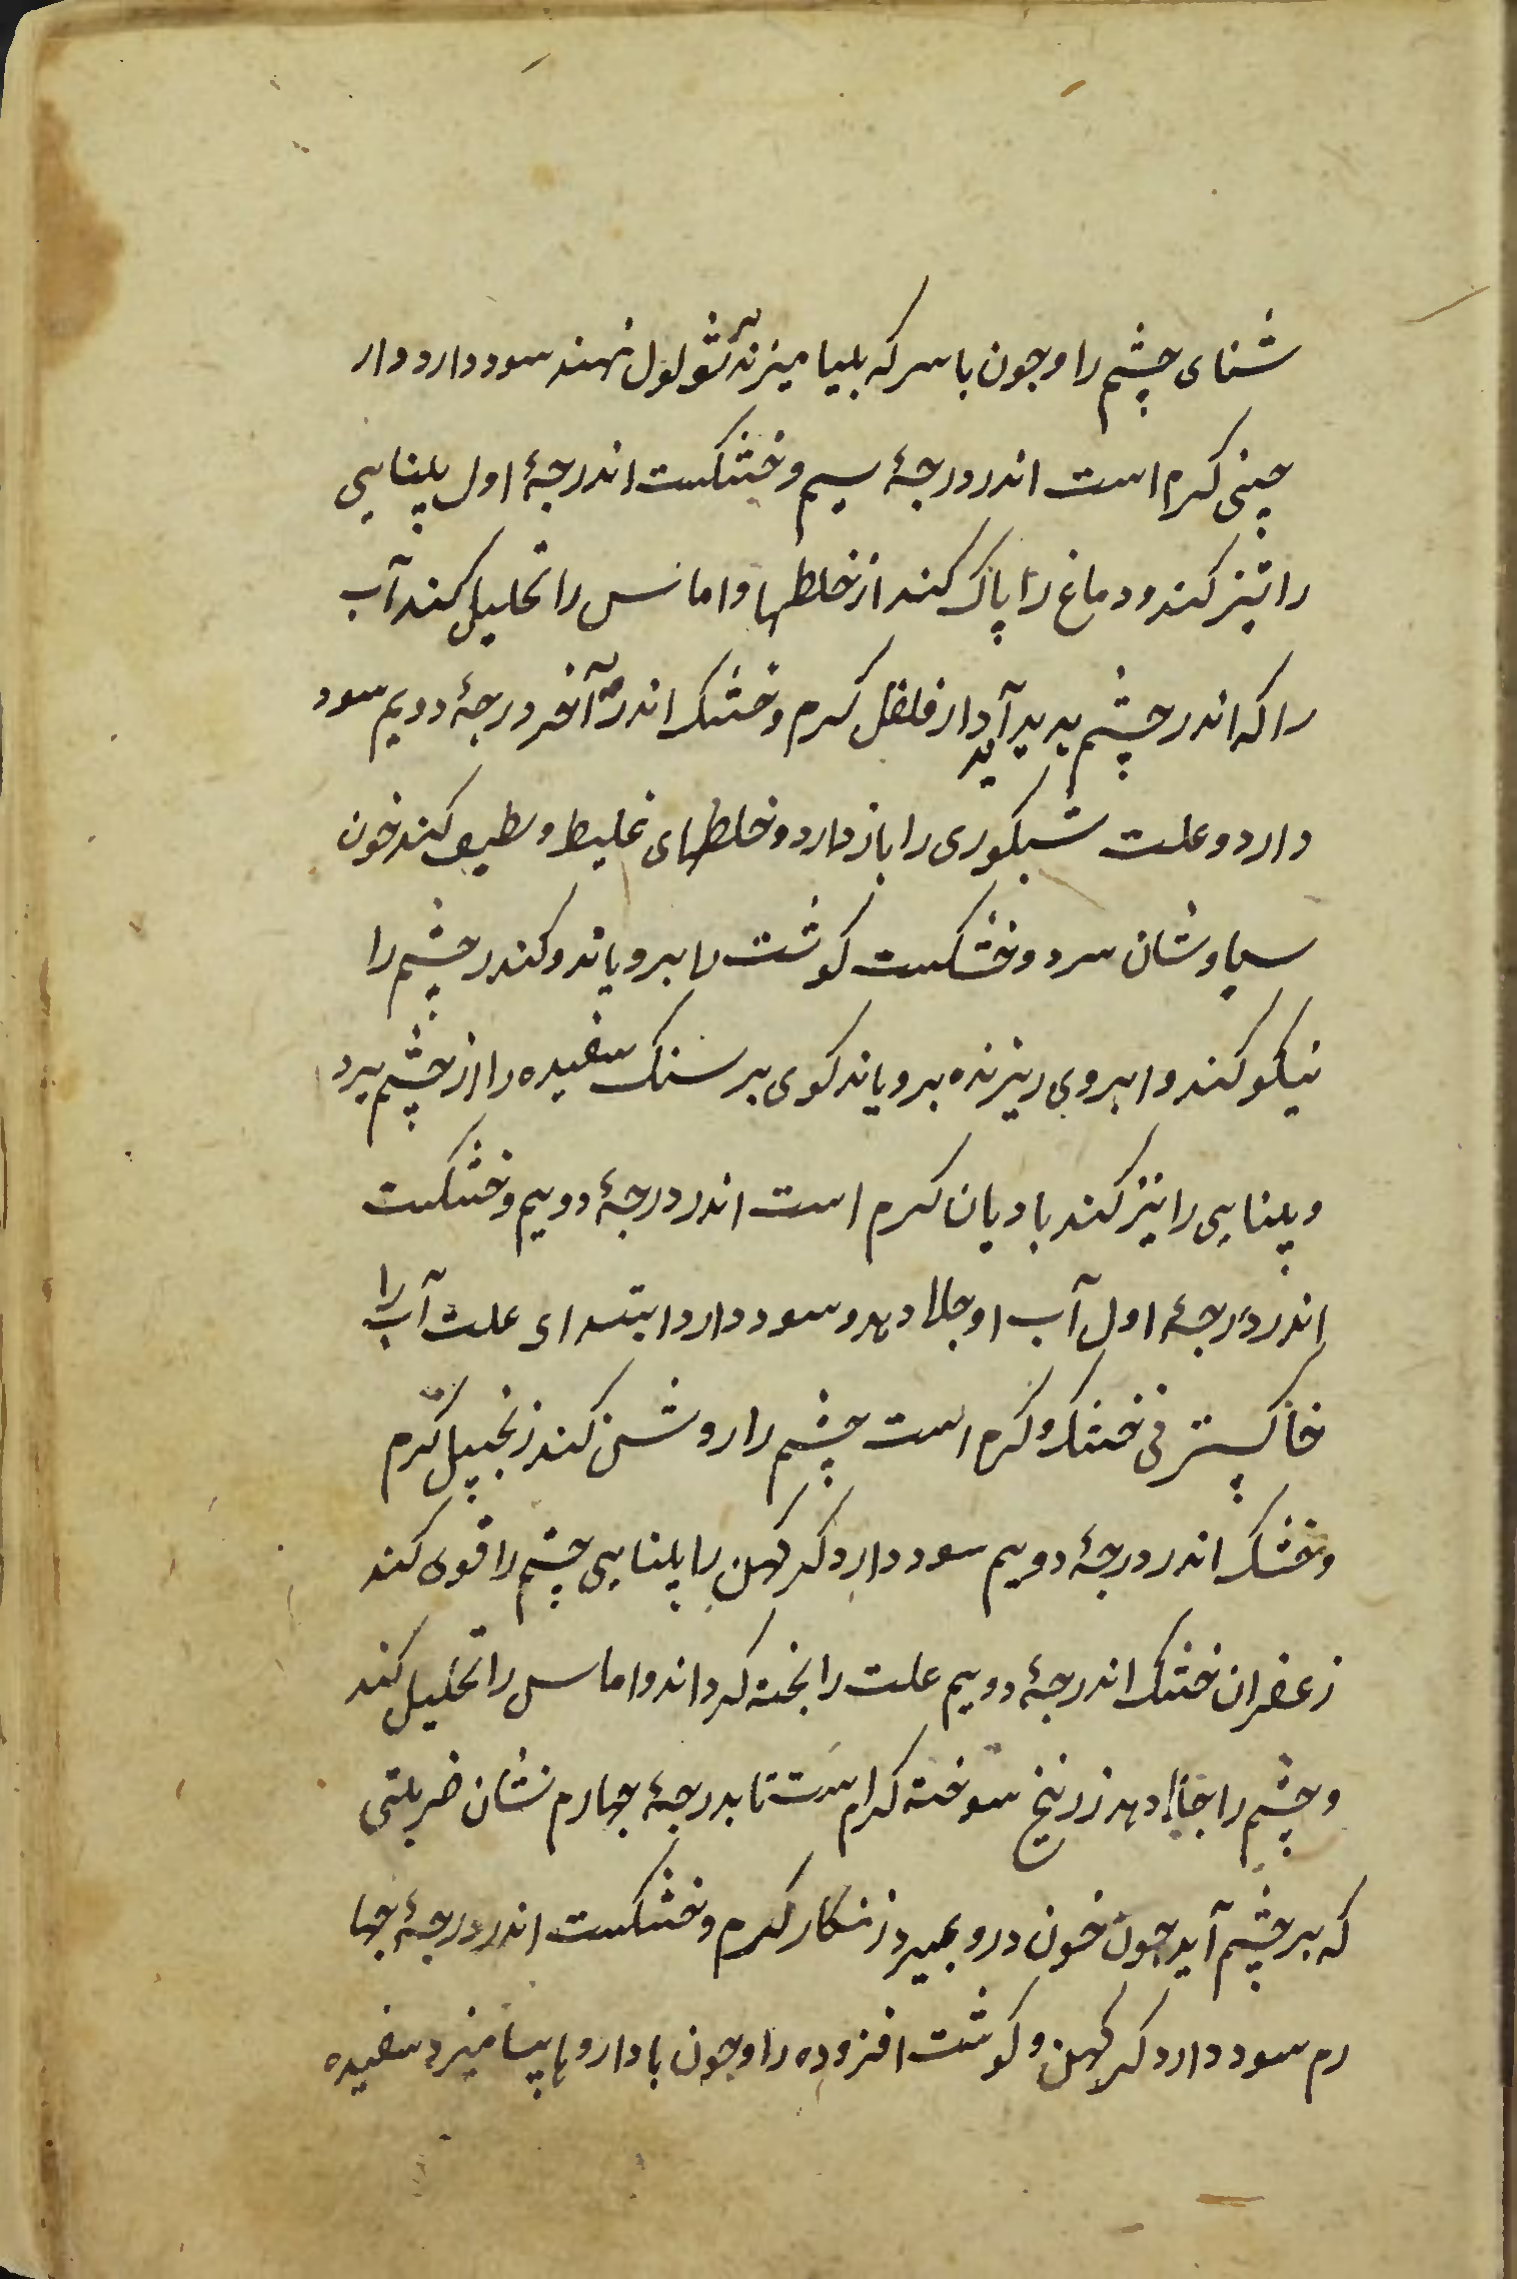 شنای چشم را و جون با سرکه بلیامیزند بر ثولول نهند سود دارد دار
چینی کرم است اندر درجۀ سیم و خشکست اندرجۀ اول بینایی
را تیز کند و دماغ را پاک کند از خلطها و اماس را تحلیل کند آب
را که اندر چشم پدید آید دار فلفل کرم و خشک اندر آخر درجۀ دویم سود
دارد و علت شبکوری را باز دارد و خلطهای غلیظ و لطیف کند خون
سیاوشان سرد و خشکست کوشت را برویاند و کندر چشم را
نیکو کند و ابروی ریزنده برویاند کوی بر سنک سفیده را از چشم ببرد
و بینایی را تیز کند بادیان کرم است اندر درجۀ دویم و خشکست
اندر درجۀ اول آب او جلا دهد و سود دارد ابتدای علت آب را
خاکستر نی خشک و کرم است چشم را روشن کند زنجبیل کرم
و خشک اندر درجۀ دویم سود دارد کر کهن را بینایی چشم را قوی کند
زعفران خشک اندرجۀ دویم علت را بخته کرداند و اماس را تحلیل کند
و چشم را جلا دهد زرنیخ سوخته کرم است تا بدرجۀ جهارم نشان ضربتی
که بر چشم آید جون خون درو بمیرد زنکار کرم و خشکست اندر درجۀ جها
رم سود دارد کر کهن و کوشت افزوده را و جون با داروها بیامیزد سفیده